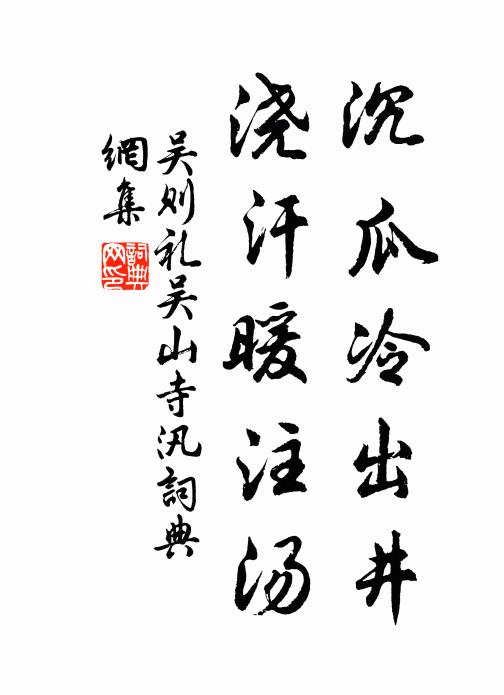 沉瓜冷出井
浇汗暖注汤
吴则礼吴山寺汎詞典
網集
詞典网印